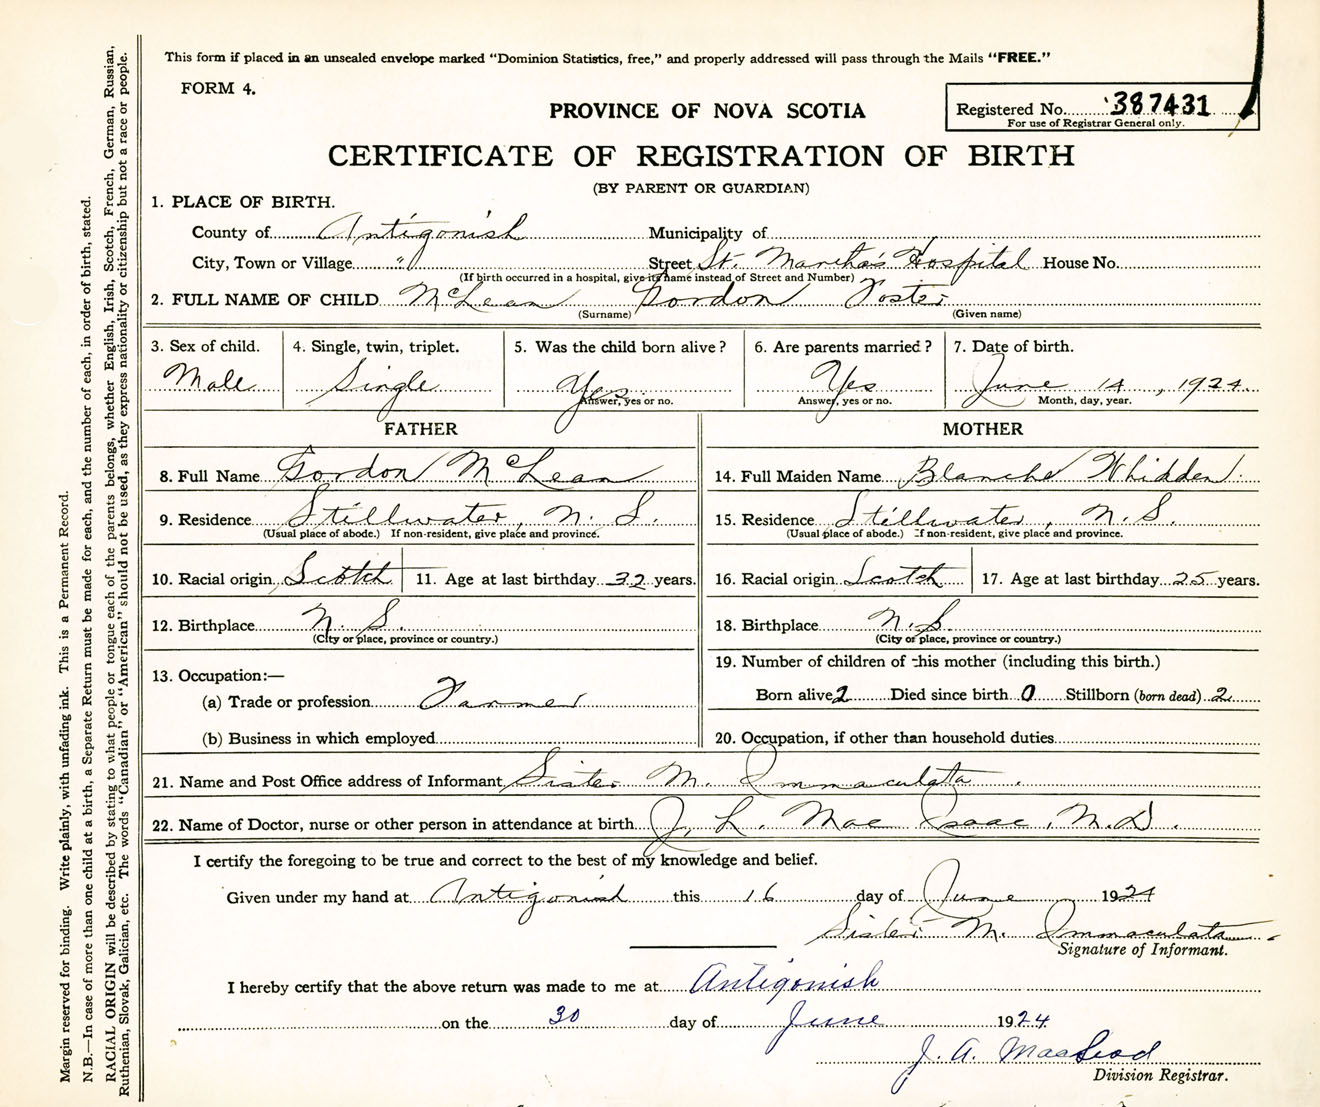 This form if placed in an unsealed envelope marked "Dominion Statistics, free," and properly addressed will pass through the Mails "FREE."
FORM 4.
PROVINCE OF NOVA SCOTIA
Registered No. 387431
For use of Registrar General only.
CERTIFICATE OF REGISTRATION OF BIRTH
(BY PARENT OR GUARDIAN)
1. PLACE OF BIRTH.
County of Antigonish Municipality of
City, Town or Village " Street St. Martha's Hospital House No.
(If birth occurred in a hospital, give its name instead of Street and Number)
2. FULL NAME OF CHILD McLean Gordon Foster
(Surname) (Given name)
3. Sex of child. 4. Single, twin, triplet. 5. Was the child born alive? 6. Are parents married? 7. Date of birth.
Male Single Yes Yes June 14, 1924
Answer, yes or no. Answer, yes or no. Month, day, year.
FATHER MOTHER
8. Full Name Gordon McLean 14. Full Maiden Name Blanche Whidden
9. Residence Stillwater, N. S. 15. Residence Stillwater, N.S.
(Usual place of abode.) If non-resident, give place and province. (Usual place of abode.) If non-resident, give place and province.
10. Racial origin Scotch 11. Age at last birthday 32 years. 16. Racial origin Scotch 17. Age at last birthday 25 years.
12. Birthplace N. S. 18. Birthplace N.S.
(City or place, province or country.) (City or place, province or country.)
13. Occupation:— 19. Number of children of this mother (including this birth.)
(a) Trade or profession Farmer Born alive 2 Died since birth 0 Stillborn (born dead) 2
(b) Business in which employed 20. Occupation, if other than household duties
21. Name and Post Office address of Informant Sister M. Immaculata.
22. Name of Doctor, nurse or other person in attendance at birth J. L. MacIsaac, M.D.
I certify the foregoing to be true and correct to the best of my knowledge and belief.
Given under my hand at Antigonish this 16 day of June 1924
Sister M. Immaculata
Signature of Informant.
I hereby certify that the above return was made to me at Antigonish
on the 30 day of June 1924
J. A. MacLeod
Division Registrar.
Margin reserved for binding. Write plainly, with unfading ink. This is a Permanent Record.
N.B.—In case of more than one child at a birth, a Separate Return must be made for each, and the number of each, in order of birth, stated.
RACIAL ORIGIN will be described by stating to what people or tongue each of the parents belongs, whether English, Irish, Scotch, French, German, Russian,
Ruthenian, Slovak, Galician, etc. The words "Canadian" or "American" should not be used, as they express nationality or citizenship but not a race or people.